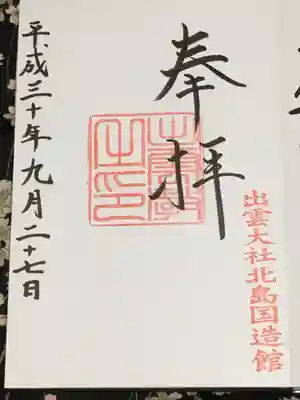 奉拝
出雲大社北島国造館
平成三十年九月二十七日